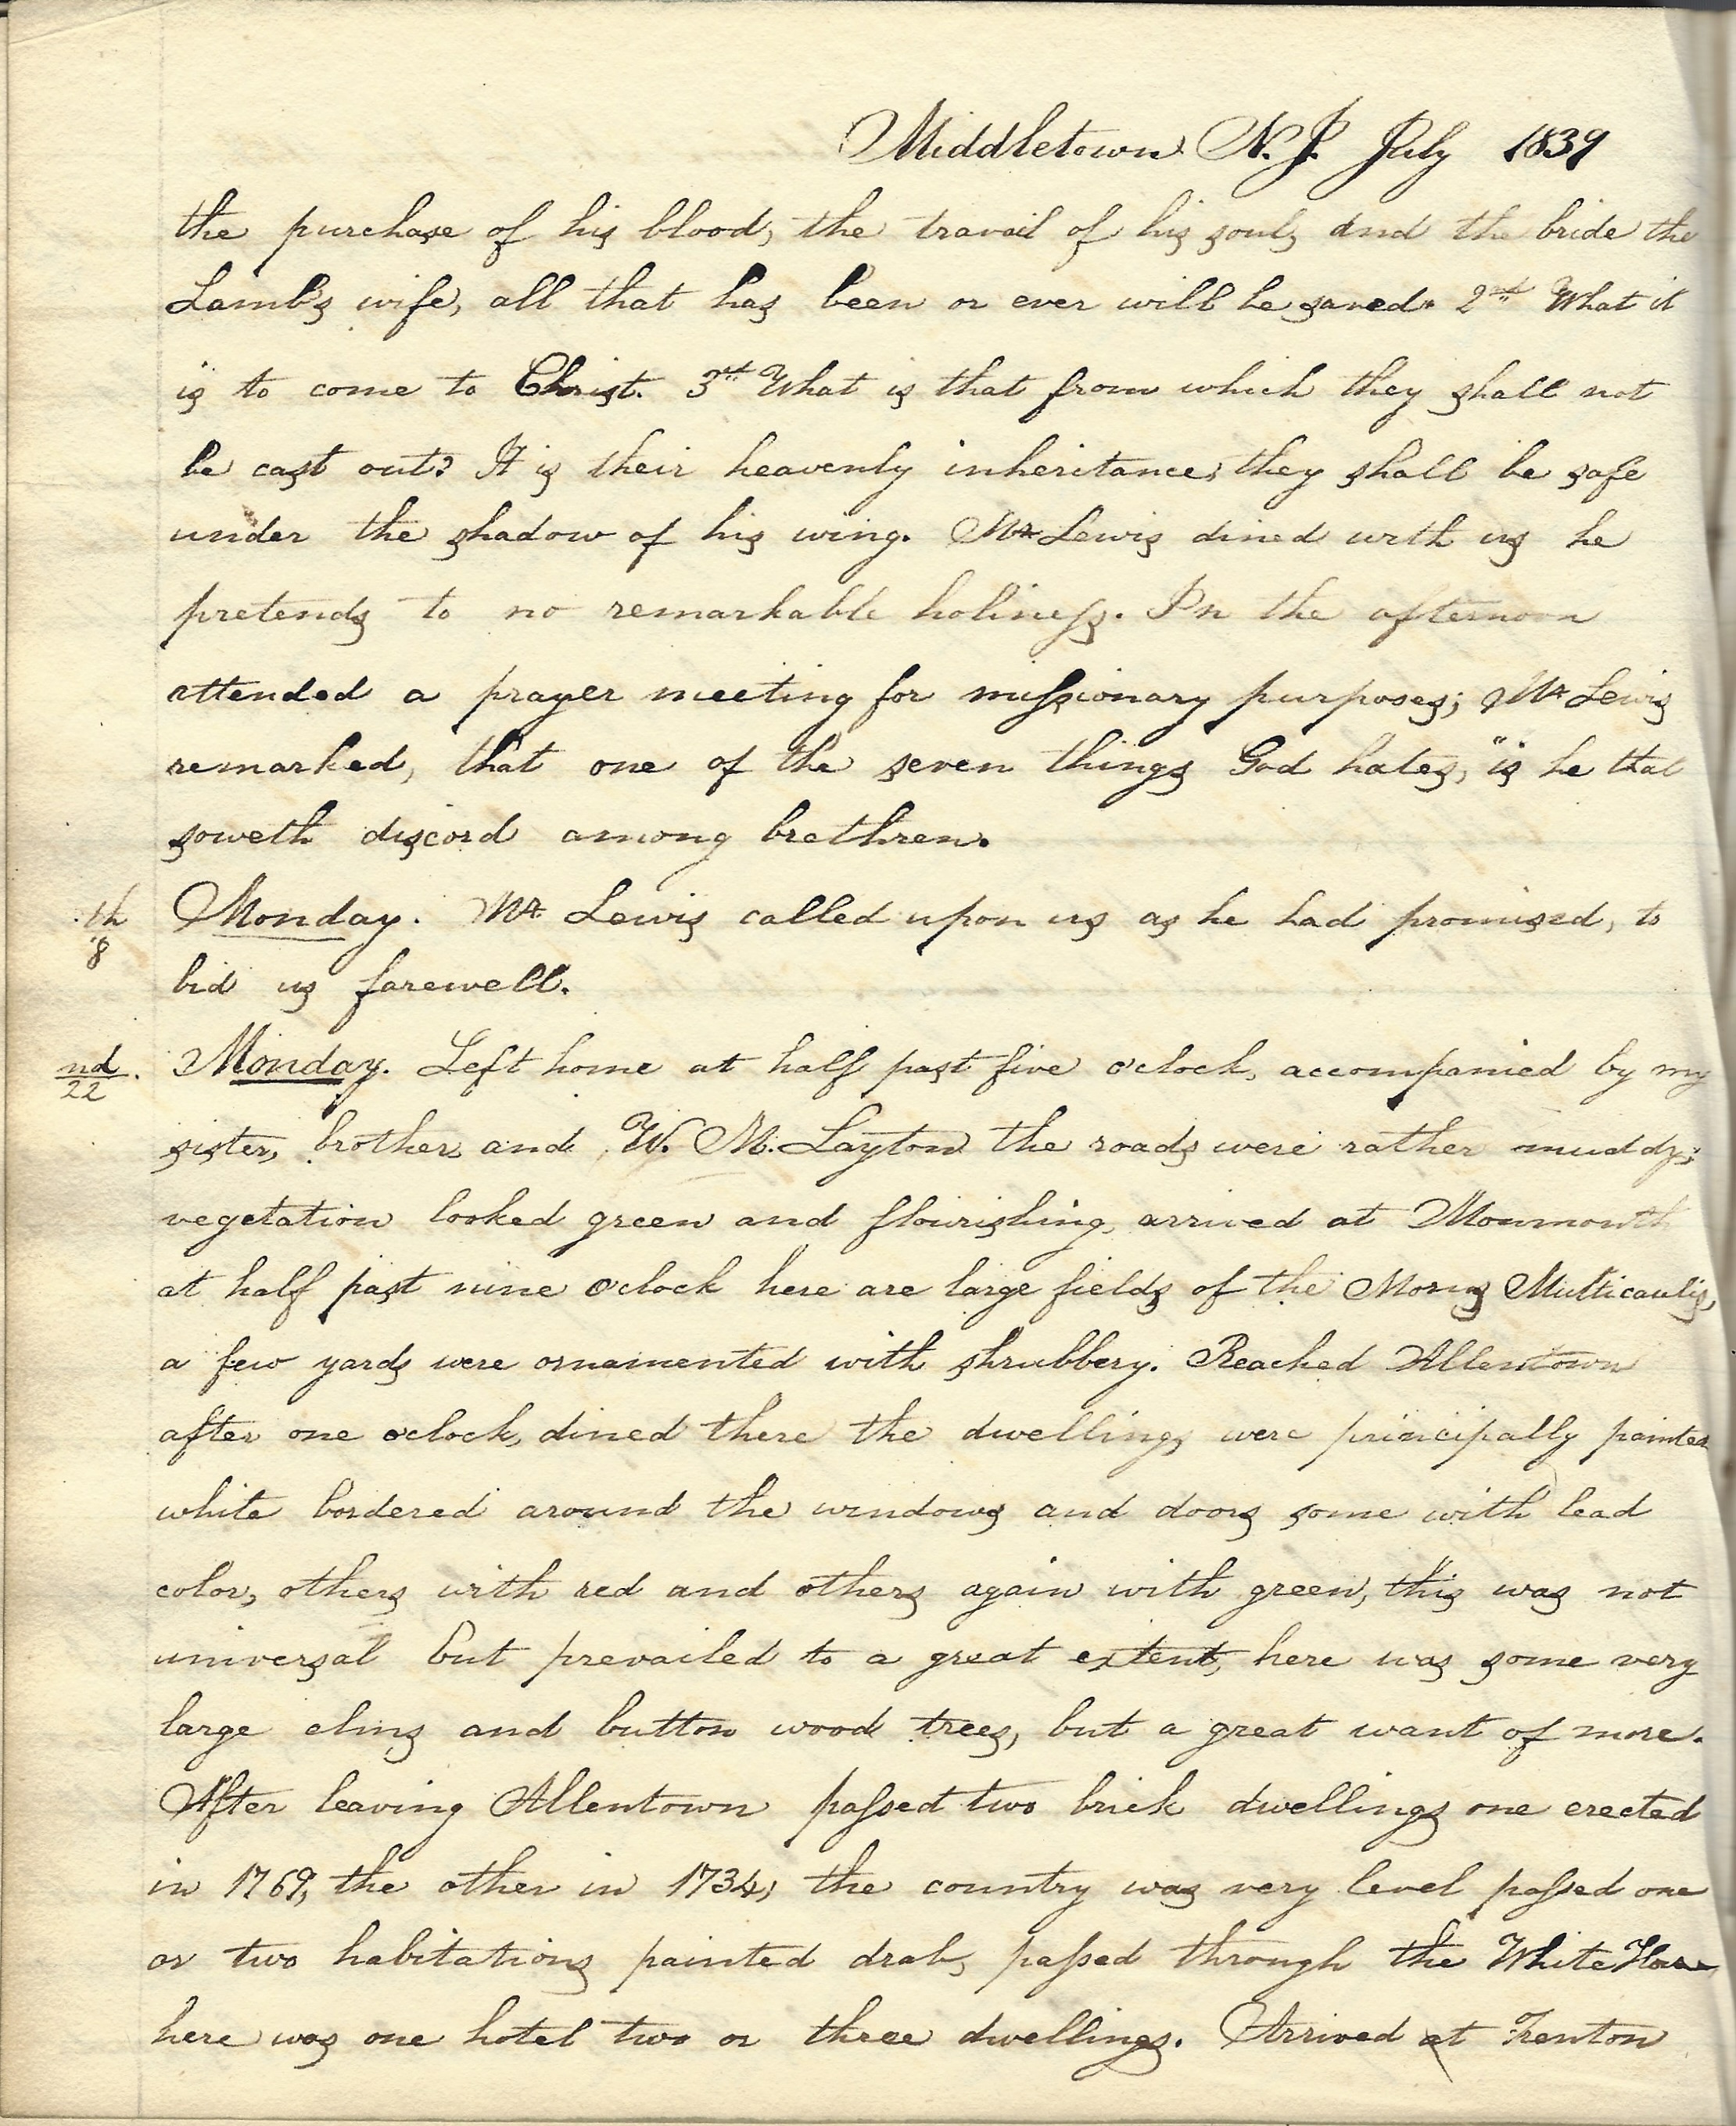 Middletown N.J. July 1839
the purchase of his blood, the travail of his soul, and the bride the
Lamb's wife, all that has been or ever will be saved. 2nd What it
is to come to Christ. 3rd What is that from which they shall not
be cast out? It is their heavenly inheritance, they shall be safe
under the shadow of his wing. Mr Lewis dined with us he
pretends to no remarkable holiness. In the afternoon
attended a prayer meeting for missionary purposes; Mr Lewis
remarked, that one of the seven things God hates, "is he that
soweth discord among brethren.
th
8
Monday. Mr Lewis called upon us as he had promised, to
bid us farewell.
nd
22
Monday. Left home at half past five o'clock, accompanied by my
sister, brother and W. M. Layton the roads were rather muddy;
vegetation looked green and flourishing, arrived at Monmouth
at half past nine o'clock here are large fields of the Morus Multicaulis,
a few yards were ornamented with shrubbery. Reached Allentown
after one o'clock, dined there the dwellings were principally painted
white bordered around the windows and doors some with lead
color, others with red and others again with green, this was not
universal but prevailed to a great extent, here was some very
large elms and button wood trees, but a great want of more.
After leaving Allentown passed two brick dwellings one erected
in 1769, the other in 1734, the country was very level passed one
or two habitations painted drab, passed through the White Horse
here was one hotel two or three dwellings. Arrived at Trenton